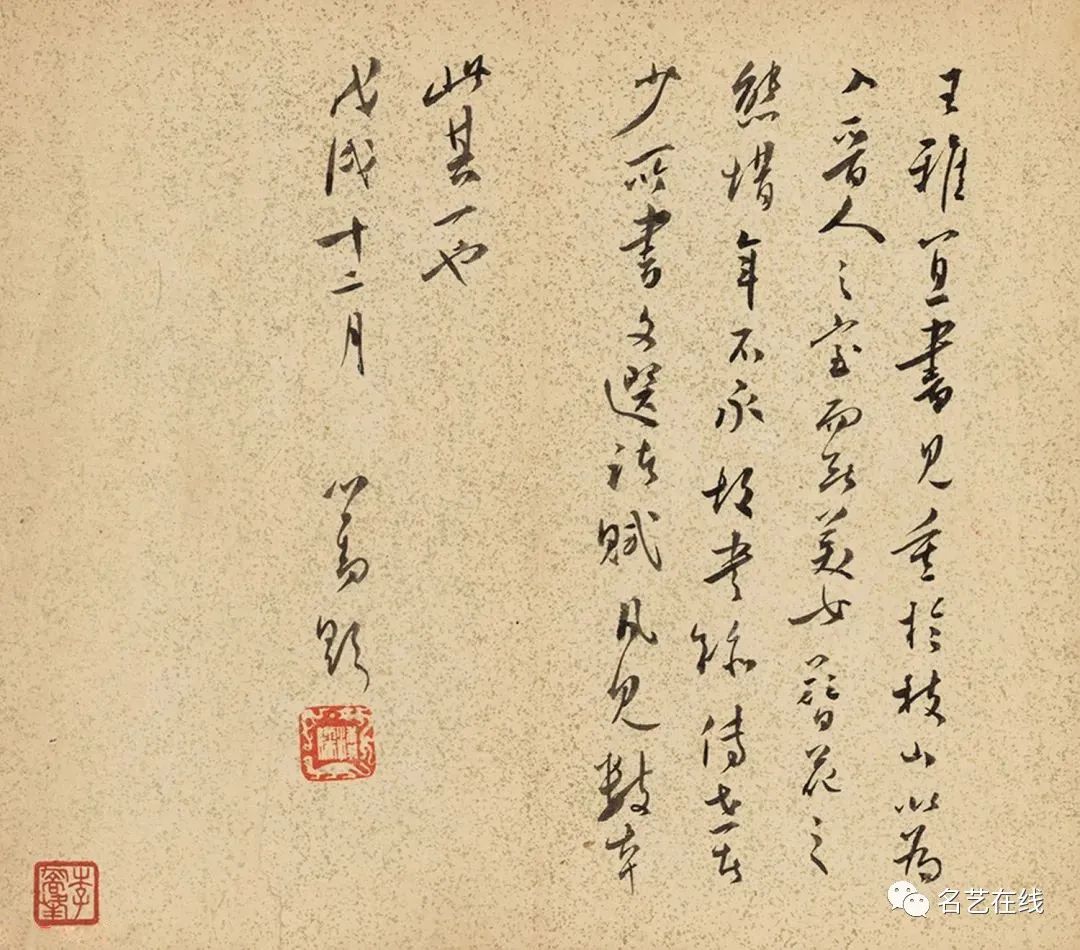 王雅宜書見重於枝山以為
入晉人之室而無美女簪花之
態惜年不永故書跡傳世甚
少所書文選諸賦凡見數本
此其一也
戊戌十二月 心畬題
名艺在线